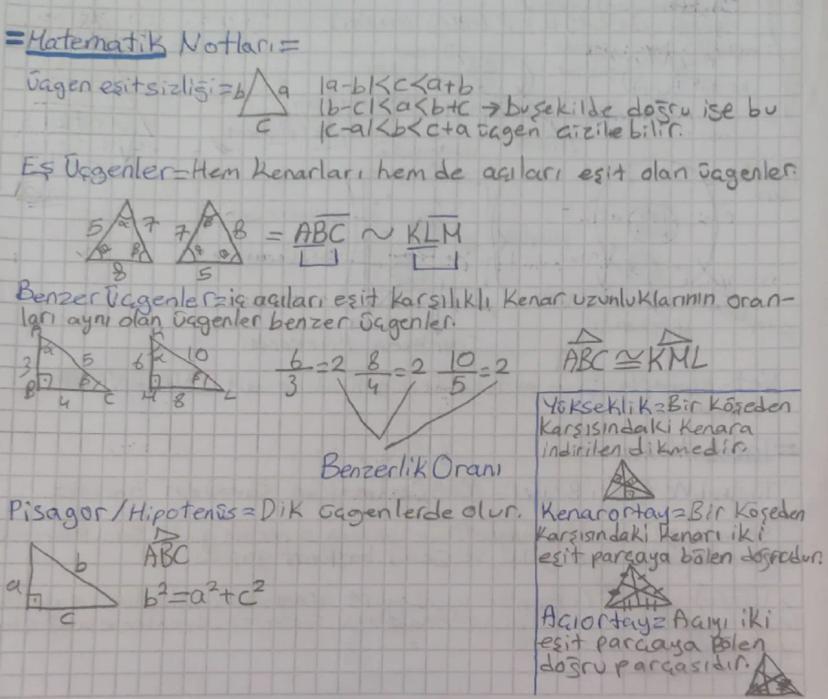 =Matematik Notları=
Üçgen eşitsizliği= b a c |a-b|<c<a+b
|b-c|<a<b+c → bu şekilde doğru ise bu
|c-a|<b<c+a üçgen çizilebilir.
Eş Üçgenler=Hem kenarları, hem de açıları eşit olan üçgenler.
5 7 8 7 8 5 = ABC ~ KLM
Benzer Üçgenler=iç açıları eşit karşılıklı kenar uzunluklarının oran-
ları aynı olan üçgenler benzer üçgenler.
3 5 4 B C 6 10 8 L 6/3=2 8/4=2 10/5=2 ABC ≅ KML
Benzerlik Oranı
Pisagor/Hipotenüs=Dik üçgenlerde olur.
a b c ABC
b²=a²+c²
Yükseklik=Bir köşeden
karşısındaki kenara
indirilen dikmedir.
Kenarortay=Bir köşeden
karşısındaki kenarı iki
eşit parçaya bölen doğrudur.
Açıortay=Açıyı iki
eşit parçaya bölen
doğru parçasıdır.